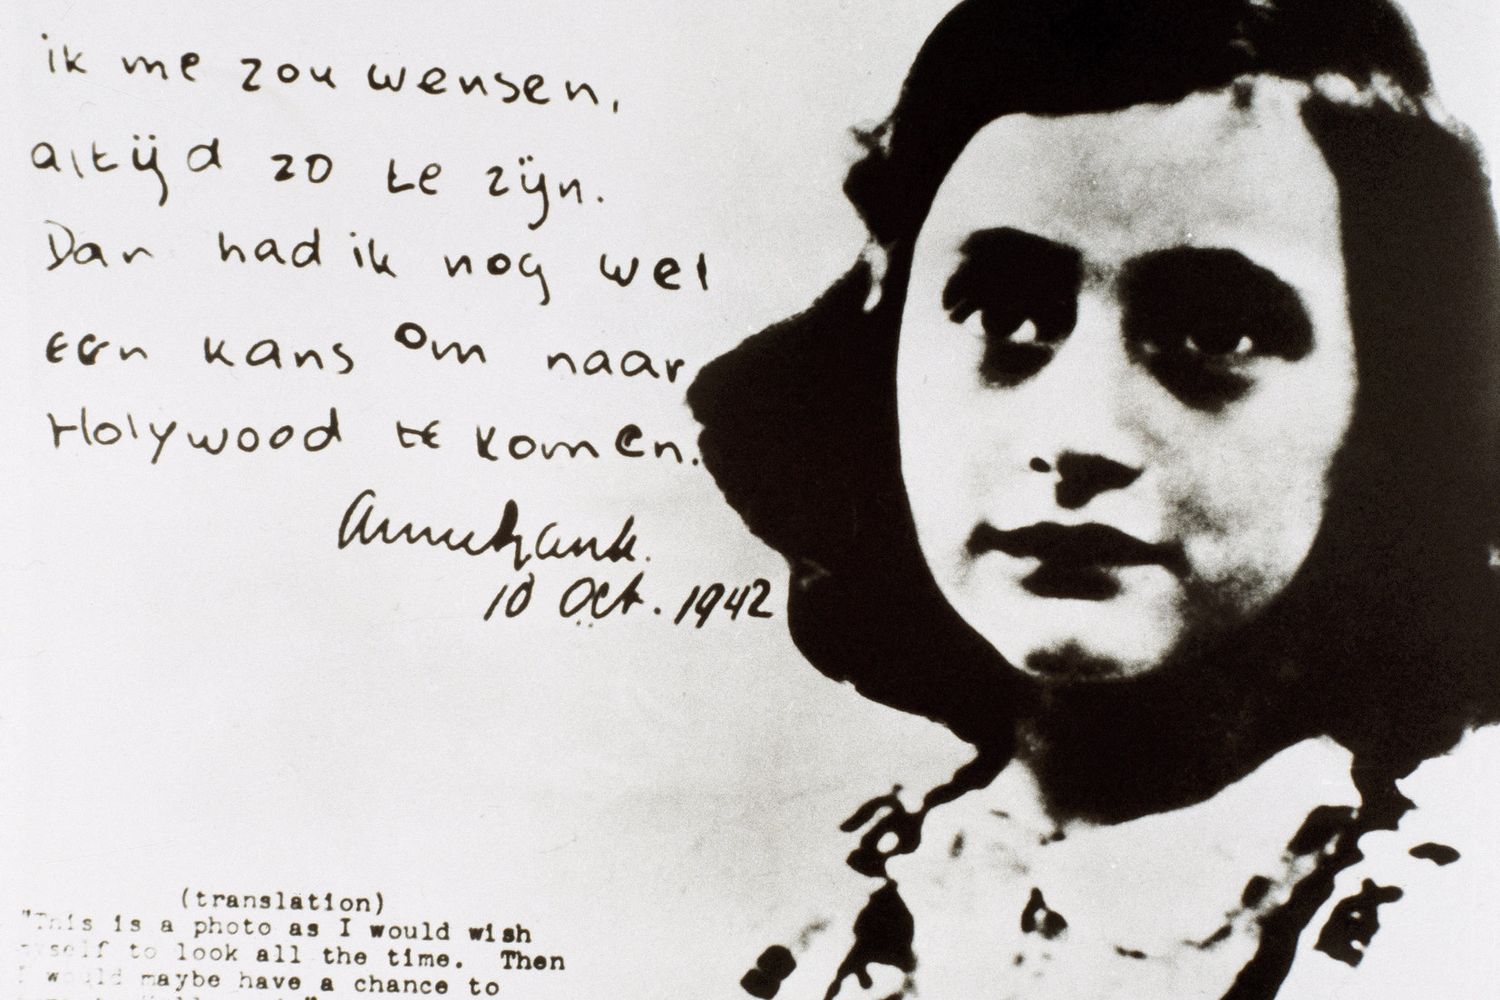 ik me zou wensen,
altijd zo te zijn.
Dan had ik nog wel
een kans om naar
Holywood te komen.
Annefrank.
10 Oct. 1942
(translation)
"This is a photo as I would wish
myself to look all the time. Then
I would maybe have a chance to